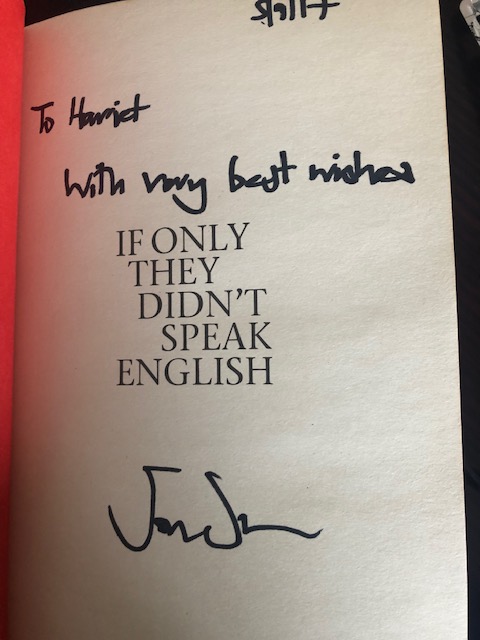 To Harriet
With very best wishes
IF ONLY
THEY
DIDN'T
SPEAK
ENGLISH
Jon